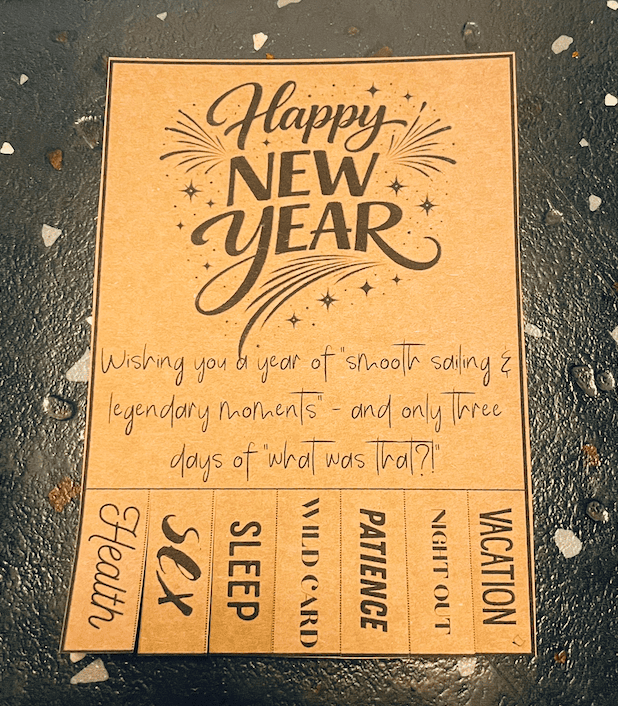 Happy
NEW
YEAR
Wishing you a year of "smooth sailing &
legendary moments" - and only three
days of "what was that?!"
Health
sex
SLEEP
WILD CARD
PATIENCE
NIGHT OUT
VACATION